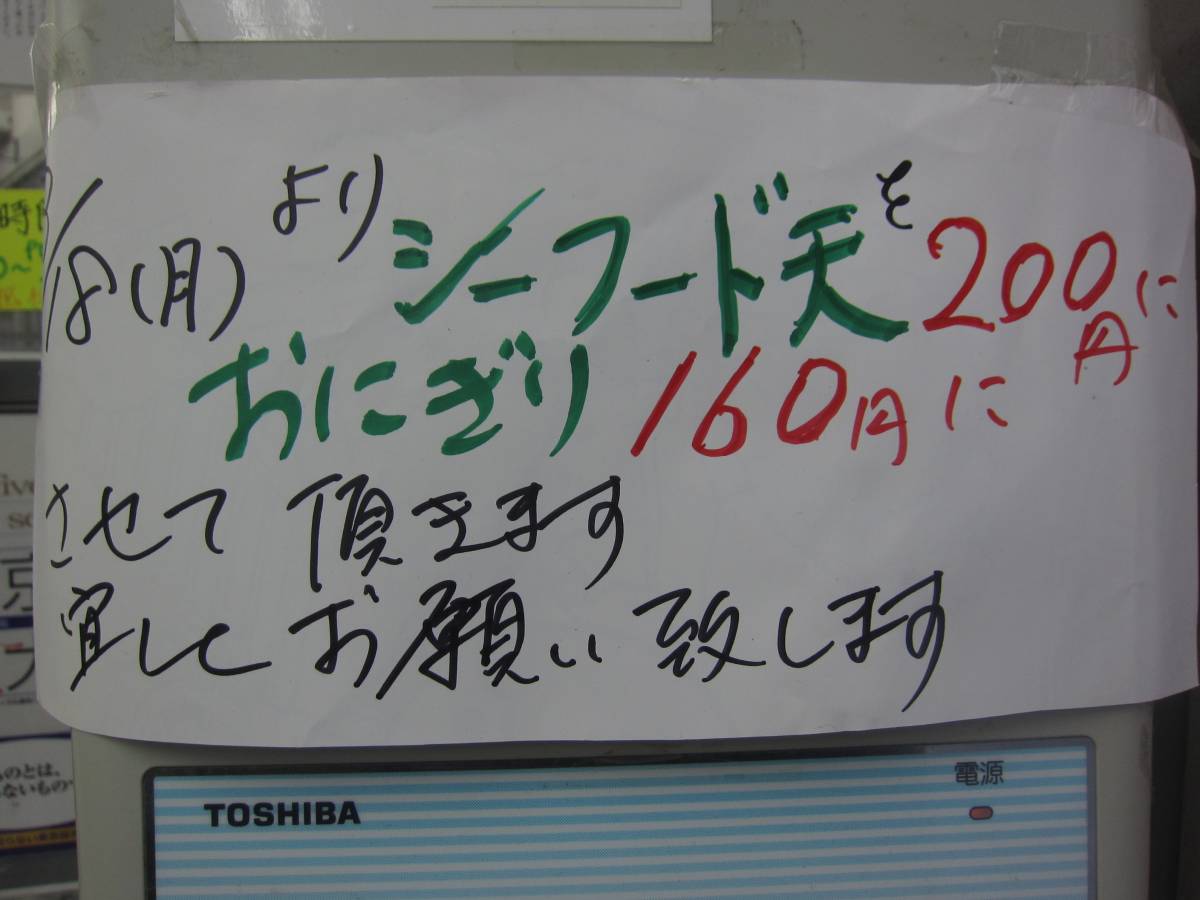 /18(月) より シーフード天を200円に
おにぎり 160円に
させて 頂きます
宜しくお願い致します
TOSHIBA
電源
時間
のとは、
ないもの